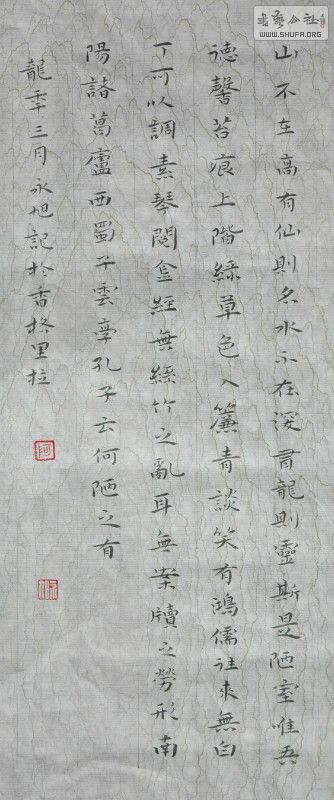 山不在高有仙則名水不在深有龍則靈斯是陋室唯吾
德馨苔痕上階綠草色入簾青談笑有鴻儒往來無白
丁可以調素琴閱金經無絲竹之亂耳無案牘之勞形南
陽諸葛廬西蜀子雲亭孔子云何陋之有
龍年三月永旭記於香格里拉
書藝公社
WWW.SHUFA.ORG